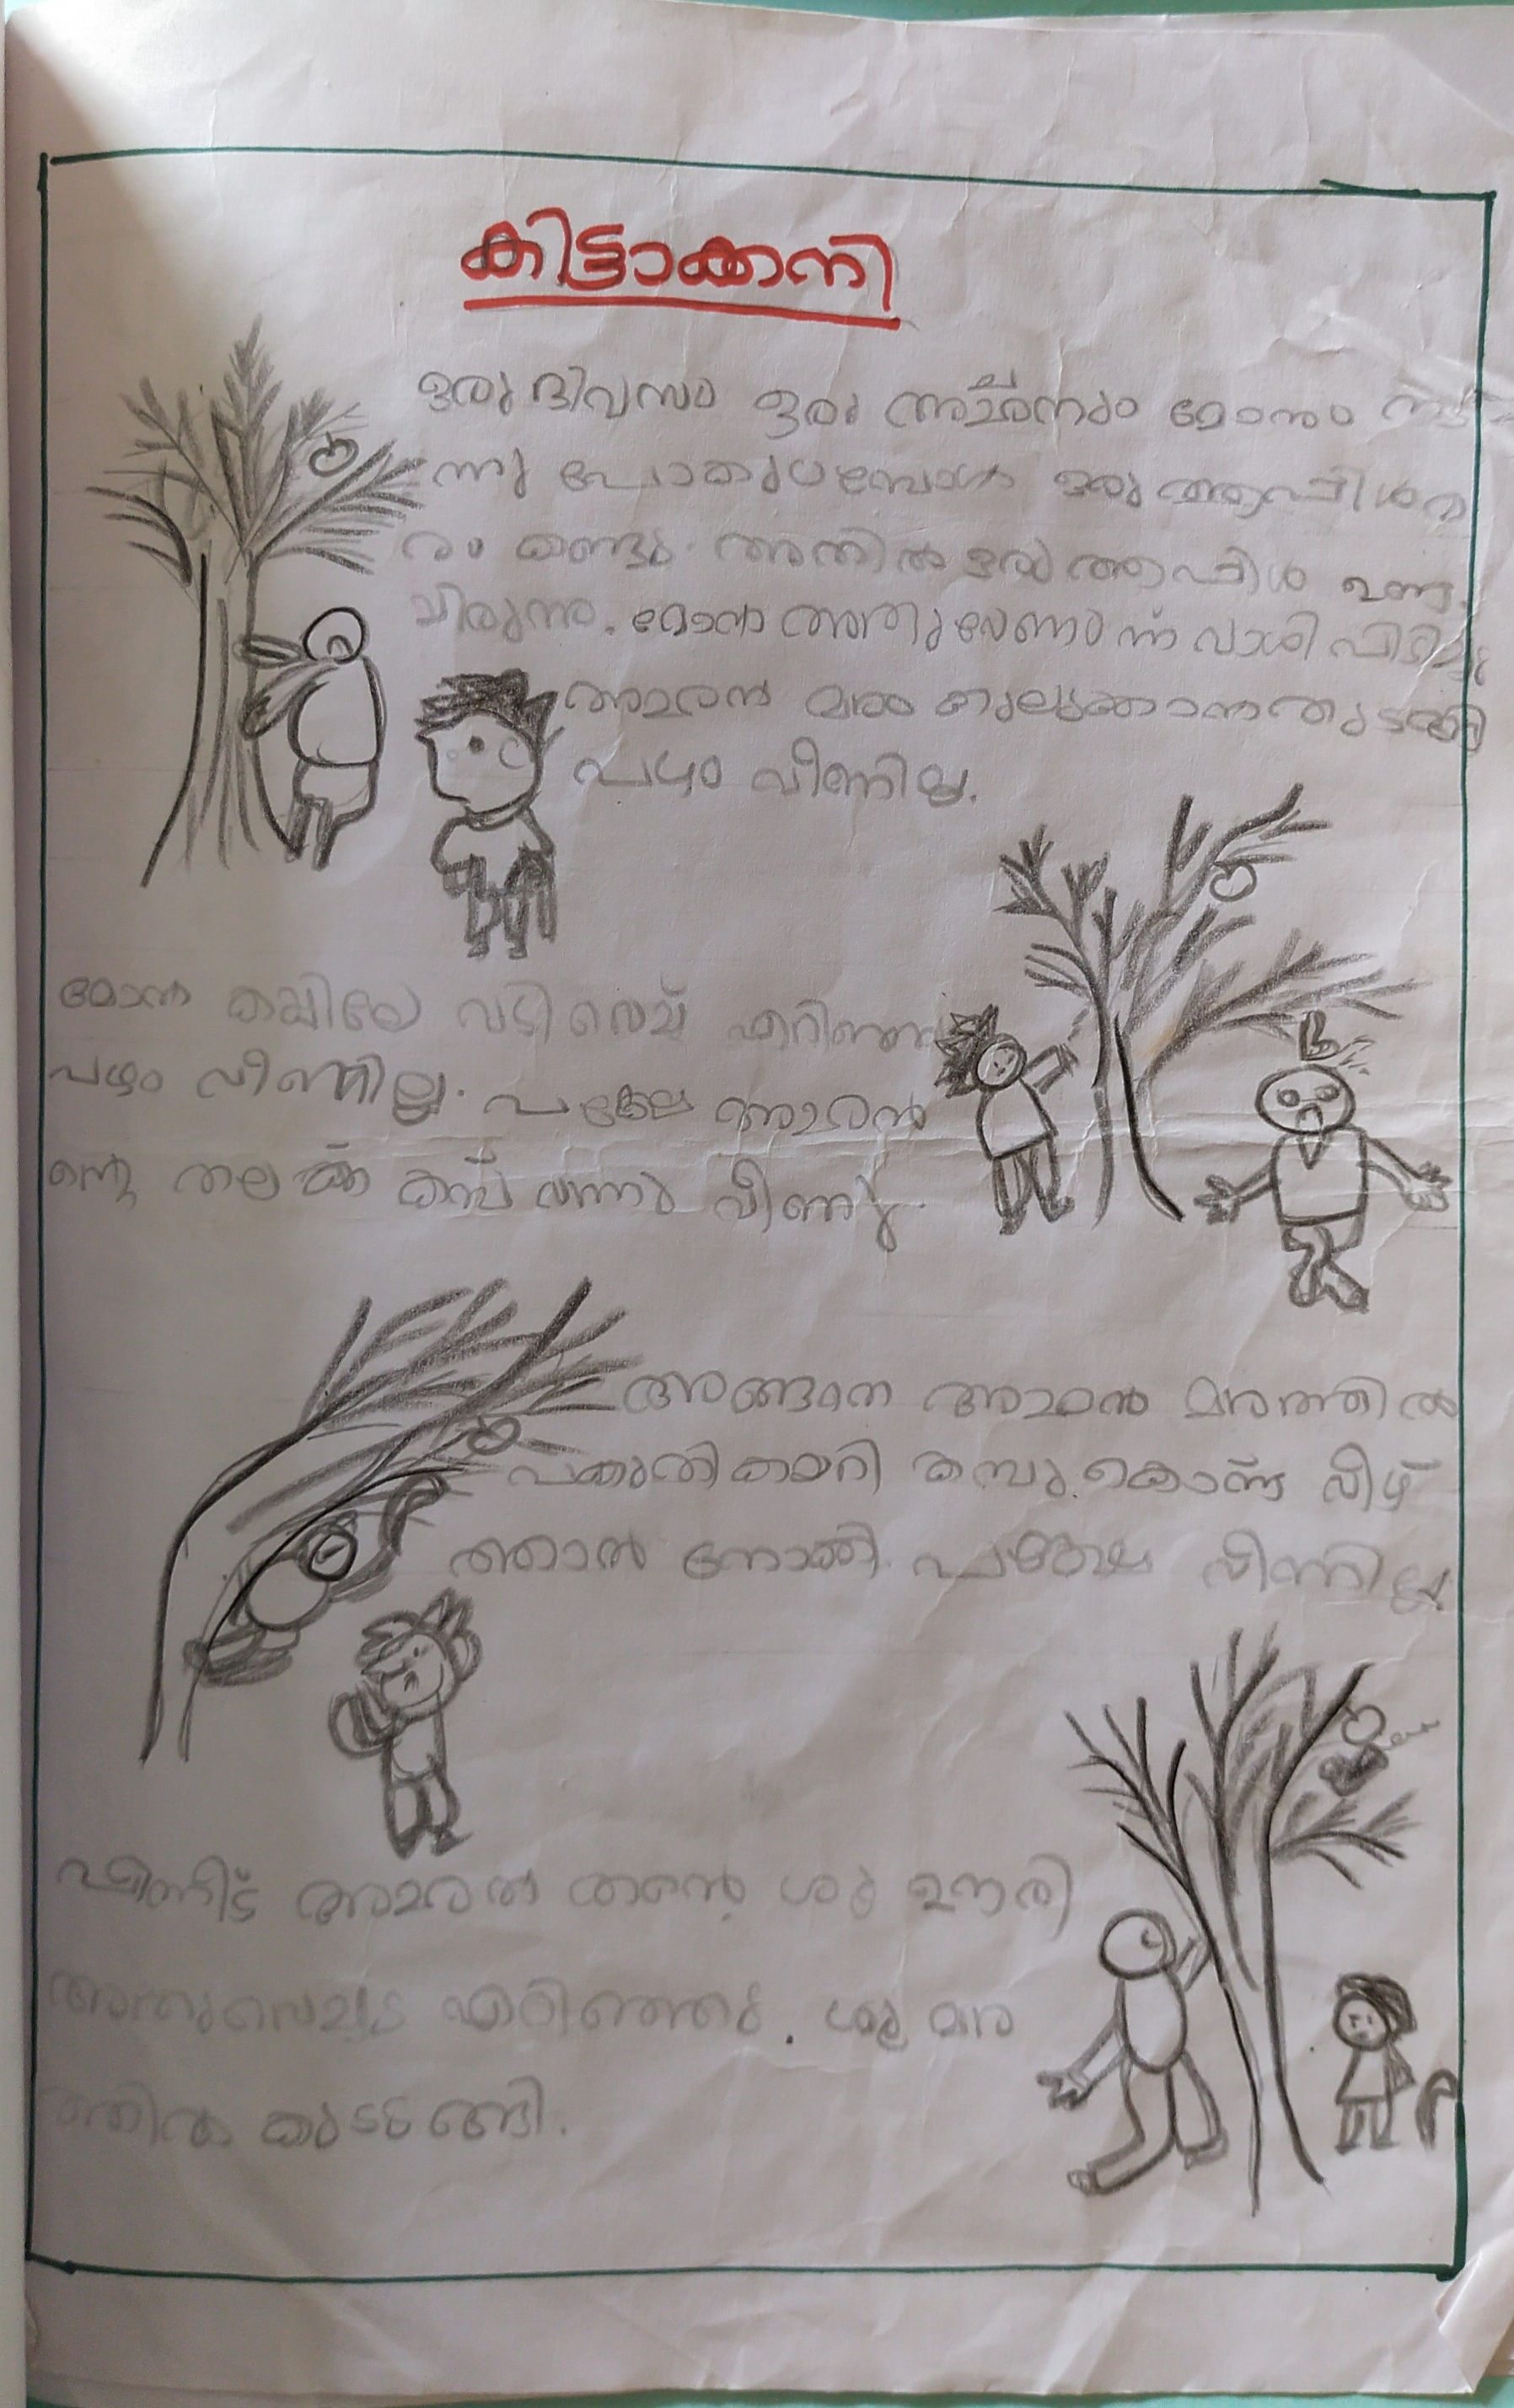 കിട്ടാക്കനി
ഒരു ദിവസം ഒരു അച്ഛനും മോനും നട
ന്നു പോകുമ്പോൾ ഒരു ആപ്പിൾമ
രം കണ്ടു. അതിൽ ഒരു ആപ്പിൾ ഉണ്ടാ
യിരുന്നു. മോൻ അതു വേണം ന്ന് വാശി പിടിച്ചു
അമരൻ മരം കുലുക്കാൻ തുടങ്ങി
പഴം വീണില്ല.
മോൻ കയ്യിലെ വടി വെച്ച് എറിഞ്ഞു
പഴം വീണില്ല. പക്ഷേ അമരൻ
ന്റെ തലക്ക് കമ്പ് വന്നു വീണു.
അങ്ങനെ അമരൻ മരത്തിൽ
പകുതി കയറി കമ്പു കൊണ്ട് വീഴ്
ത്താൻ നോക്കി. പക്ഷേ വീണില്ല.
പിന്നീട് അമരൻ തൻ്റെ ഷൂ ഊരി
അതുവെച്ച് എറിഞ്ഞു. ഷൂ മര
ത്തിൽ കുടുങ്ങി.